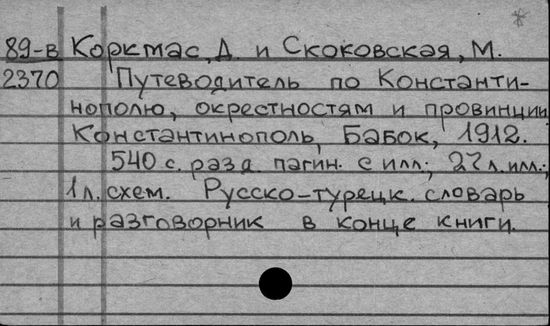 89-в Коркмас, Д. и Скоковская, М.
2370 Путеводитель по Константи-
нополю, окрестностям и провинции
Константинополь, Бабок, 1912.
540 с. разд. пагин. с илл.; 27 л. илл.;
1 л. схем. Русско-турецк. словарь
и разговорник в конце книги.